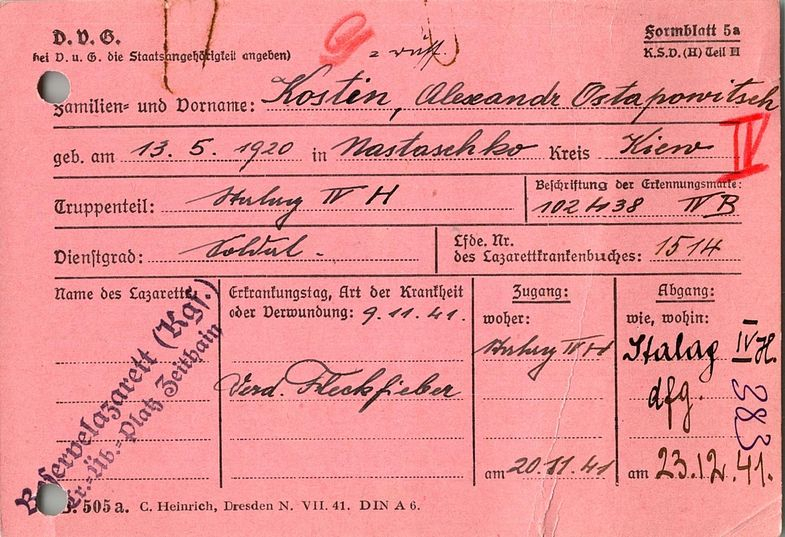 D. V. G.
bei D. u. G. die Staatsangehörigkeit angeben)
Formblatt 5a
K.S.D. (H) Teil II
2 russ.
Familien- und Vorname: Kostin, Alexandr Ostapowitsch
geb. am 13. 5. 1920 in Nastaschko Kreis Kiew
IV
Truppenteil: Stalag IV H
Beschriftung der Erkennungsmarke:
102438 IV B
Dienstgrad: Soldat
Lfde. Nr.
des Lazarettkrankenbuches: 1514
Name des Lazaretts
Reservelazarett (Kgf.)
Tr.-Üb.-Platz Zeithain
Erkrankungstag, Art der Krankheit
oder Verwundung: 9. 11. 41.
Verd. Fleckfieber
Zugang:
woher:
Stalag IV H
am 20.11 41
Abgang:
wie, wohin:
Stalag IV H.
dfg.
383
am 23.12.41.
B. 505a. C. Heinrich, Dresden N. VII. 41. DIN A 6.